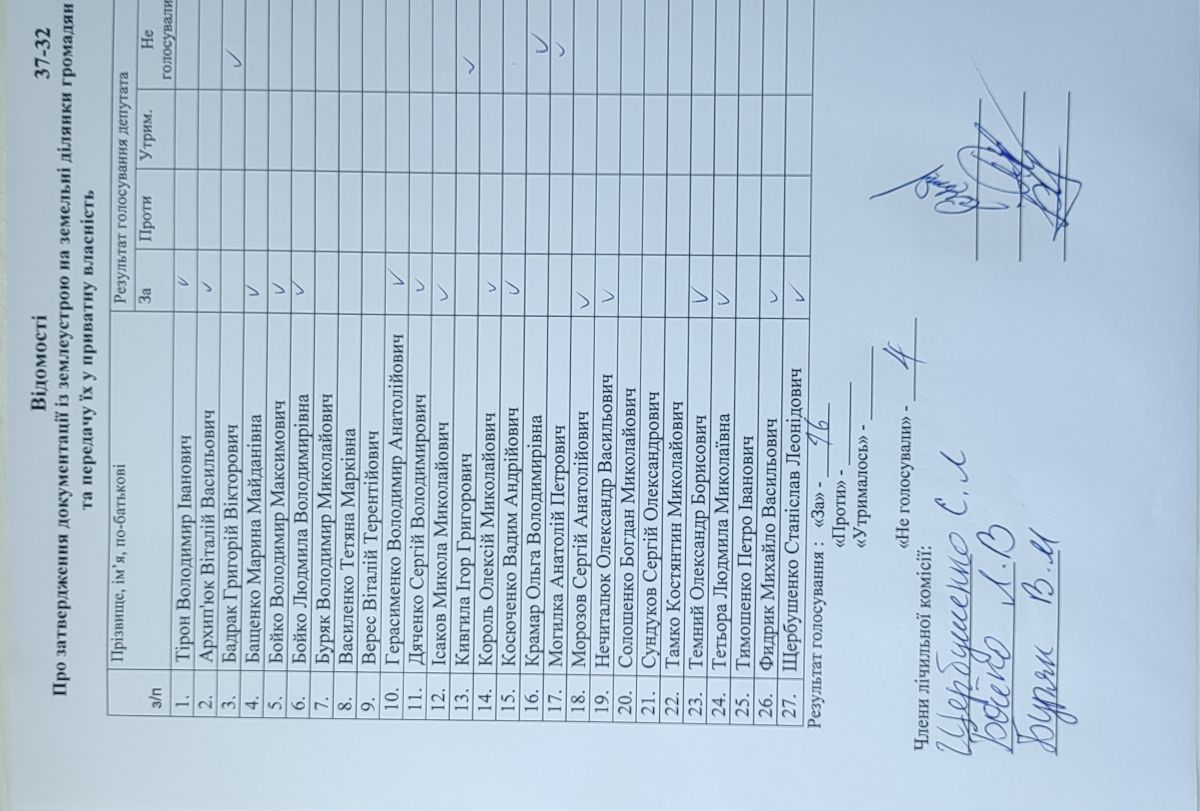 Відомості 37-32
Про затвердження документації із землеустрою на земельні ділянки громадян
та передачу їх у приватну власність
з/п Прізвище, ім'я, по-батькові Результат голосування депутата
За Проти Утрим. Не голосували
1. Тірон Володимир Іванович ✓
2. Архип'юк Віталій Васильович ✓
3. Бадрак Григорій Вікторович ✓
4. Бащенко Марина Майданівна ✓
5. Бойко Володимир Максимович ✓
6. Бойко Людмила Володимирівна ✓
7. Буряк Володимир Миколайович
8. Василенко Тетяна Марківна
9. Верес Віталій Терентійович
10. Герасименко Володимир Анатолійович ✓
11. Дяченко Сергій Володимирович ✓
12. Ісаков Микола Миколайович ✓
13. Кивгила Ігор Григорович ✓
14. Король Олексій Миколайович ✓
15. Косюченко Вадим Андрійович ✓
16. Крамар Ольга Володимирівна ✓
17. Могилка Анатолій Петрович ✓
18. Морозов Сергій Анатолійович ✓
19. Нечиталюк Олександр Васильович ✓
20. Солошенко Богдан Миколайович
21. Сундуков Сергій Олександрович
22. Тамко Костянтин Миколайович
23. Темний Олександр Борисович ✓
24. Тетьора Людмила Миколаївна ✓
25. Тимошенко Петро Іванович
26. Фидрик Михайло Васильович ✓
27. Щербушенко Станіслав Леонідович ✓
Результат голосування : «За» - 16
«Проти» -
«Утрималось» -
«Не голосували» - 4
Члени лічильної комісії:
Щербушенко С.Л
Бойко Л.В
Буряк В.М